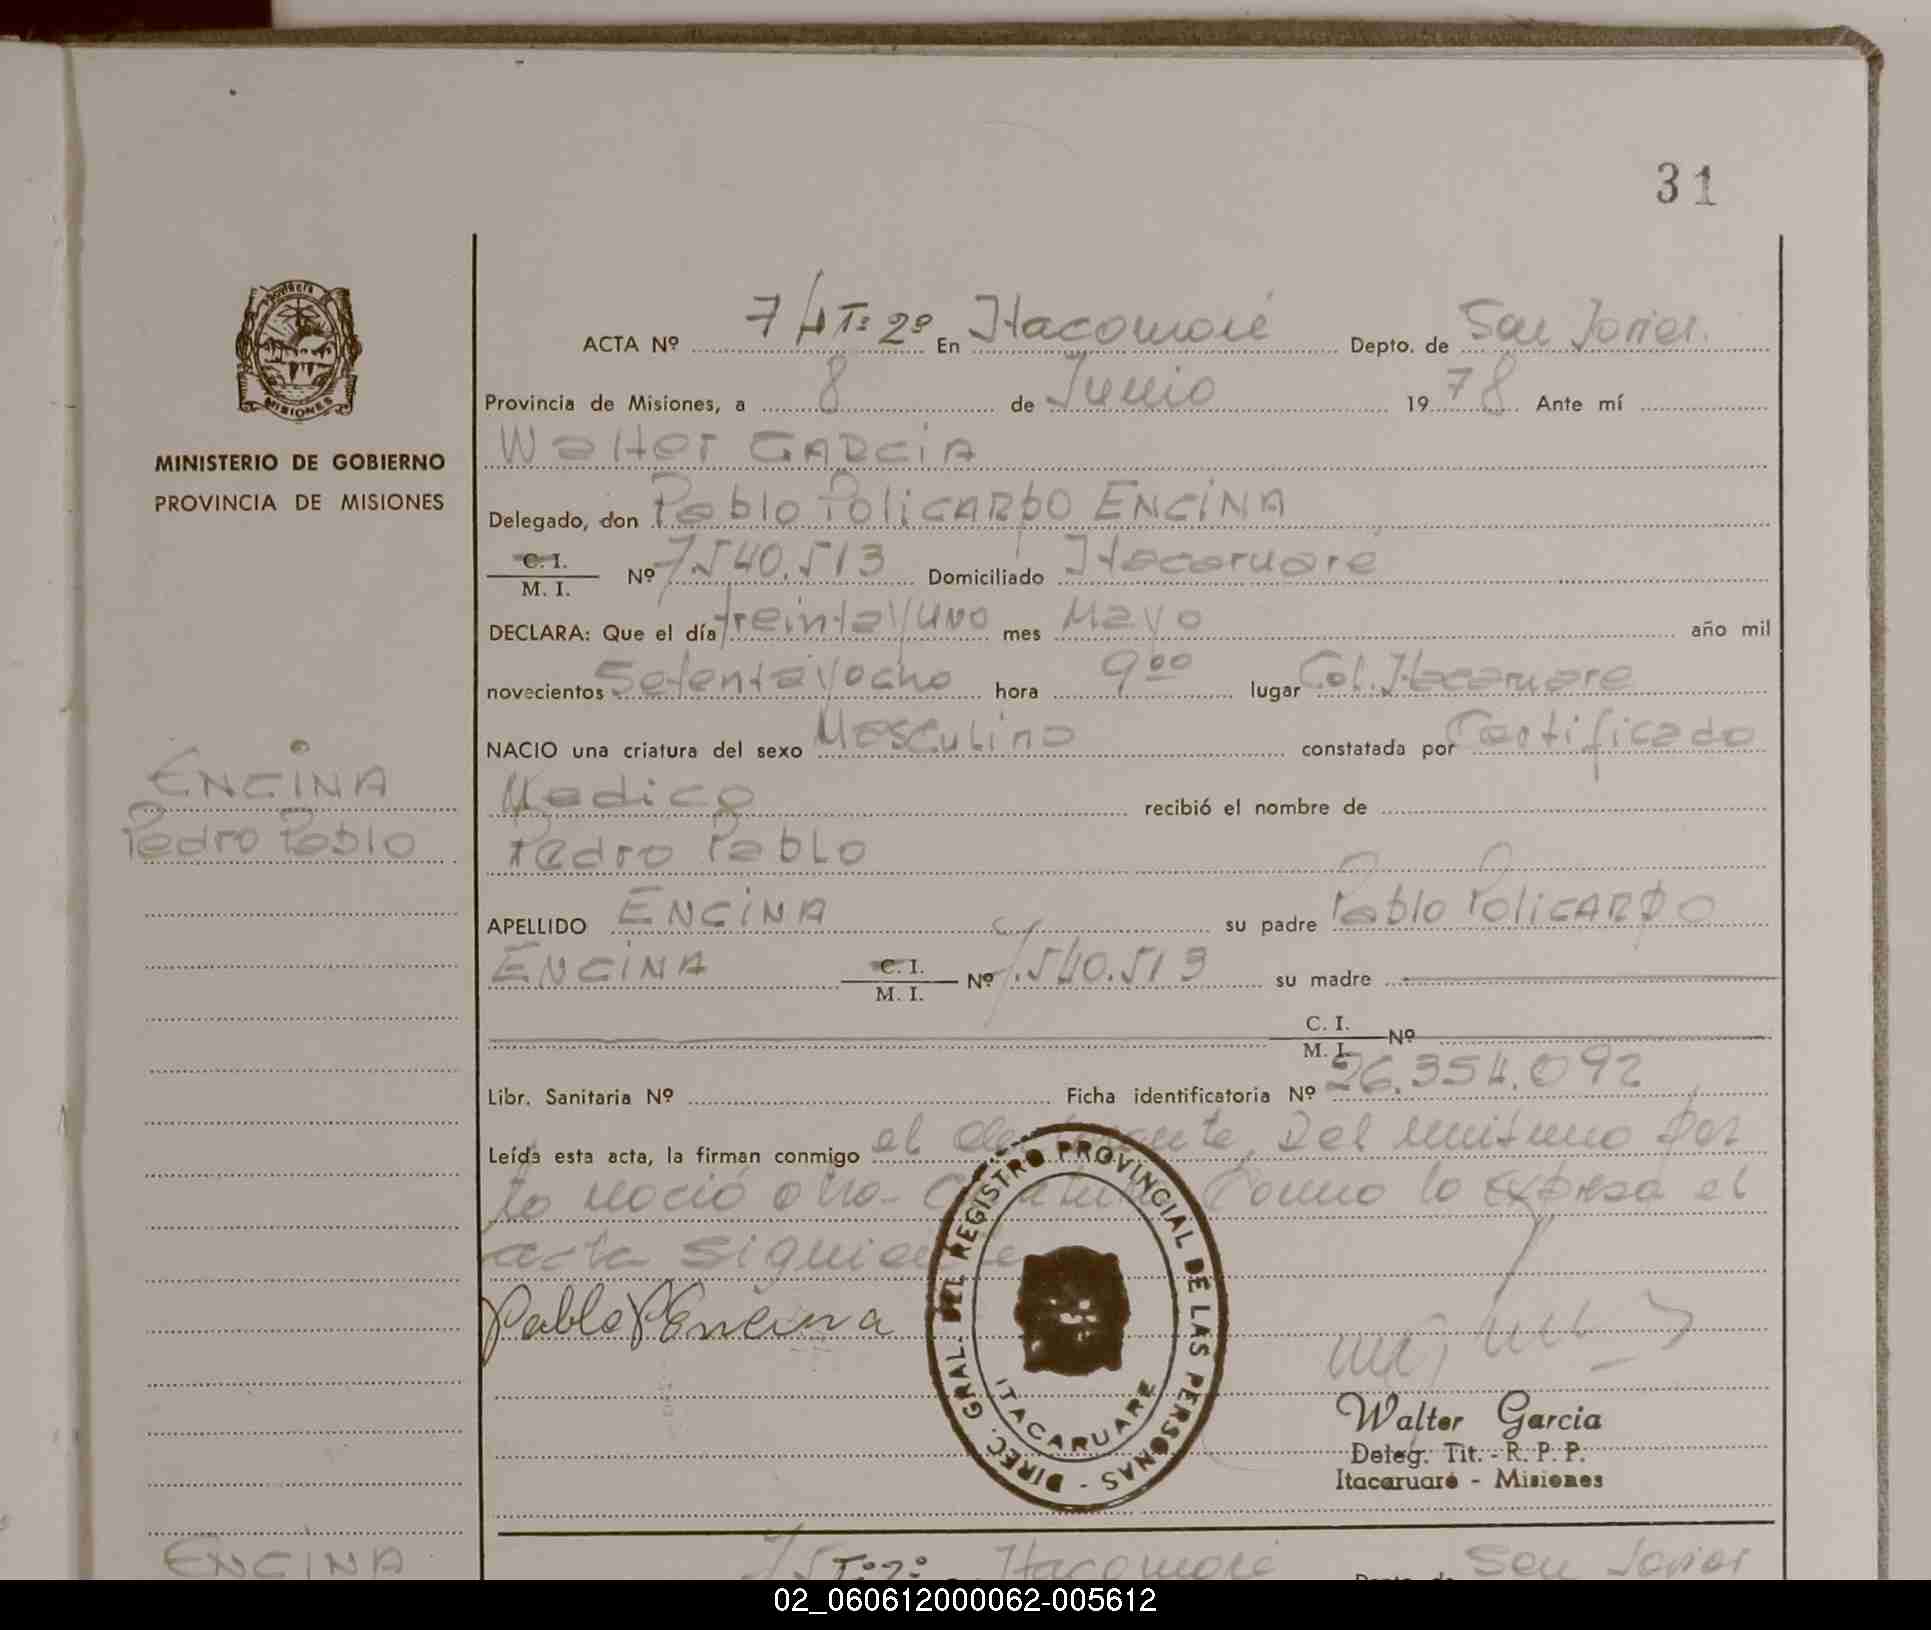 31
Provincia
MISIONES
MINISTERIO DE GOBIERNO
PROVINCIA DE MISIONES
ENCINA
Pedro Pablo
ACTA Nº 74 Tº 2º En Itacaruaré Depto. de San Javier.
Provincia de Misiones, a 8 de Junio 1978 Ante mí
Walter GARCIA
Delegado, don Pablo Policarpo ENCINA
C. I.
M. I. Nº 7.540.513 Domiciliado Itacaruaré
DECLARA: Que el día treintayuno mes Mayo año mil
novecientos Setentayocho hora 9 00 lugar Col. Itacaruare
NACIO una criatura del sexo Masculino constatada por Certificado
Medico recibió el nombre de
Pedro Pablo
APELLIDO ENCINA su padre Pablo Policarpo
ENCINA C. I. M. I. Nº 7.540.513 su madre
C. I. M. I. Nº
Libr. Sanitaria Nº Ficha identificatoria Nº 26.354.092
Leída esta acta, la firman conmigo el Del mismo par
to nació otra Como lo expresa el
acta siguiente
Pablo P Encina
DIREC. GRAL. DEL REGISTRO PROVINCIAL DE LAS PERSONAS -
ITACARUARE
Walter Garcia
Deleg. Tit. - R. P. P.
Itacaruaré - Misiones
ENCINA
75 Tº 2º Itacaruaré Depto. de San Javier
02_060612000062-005612